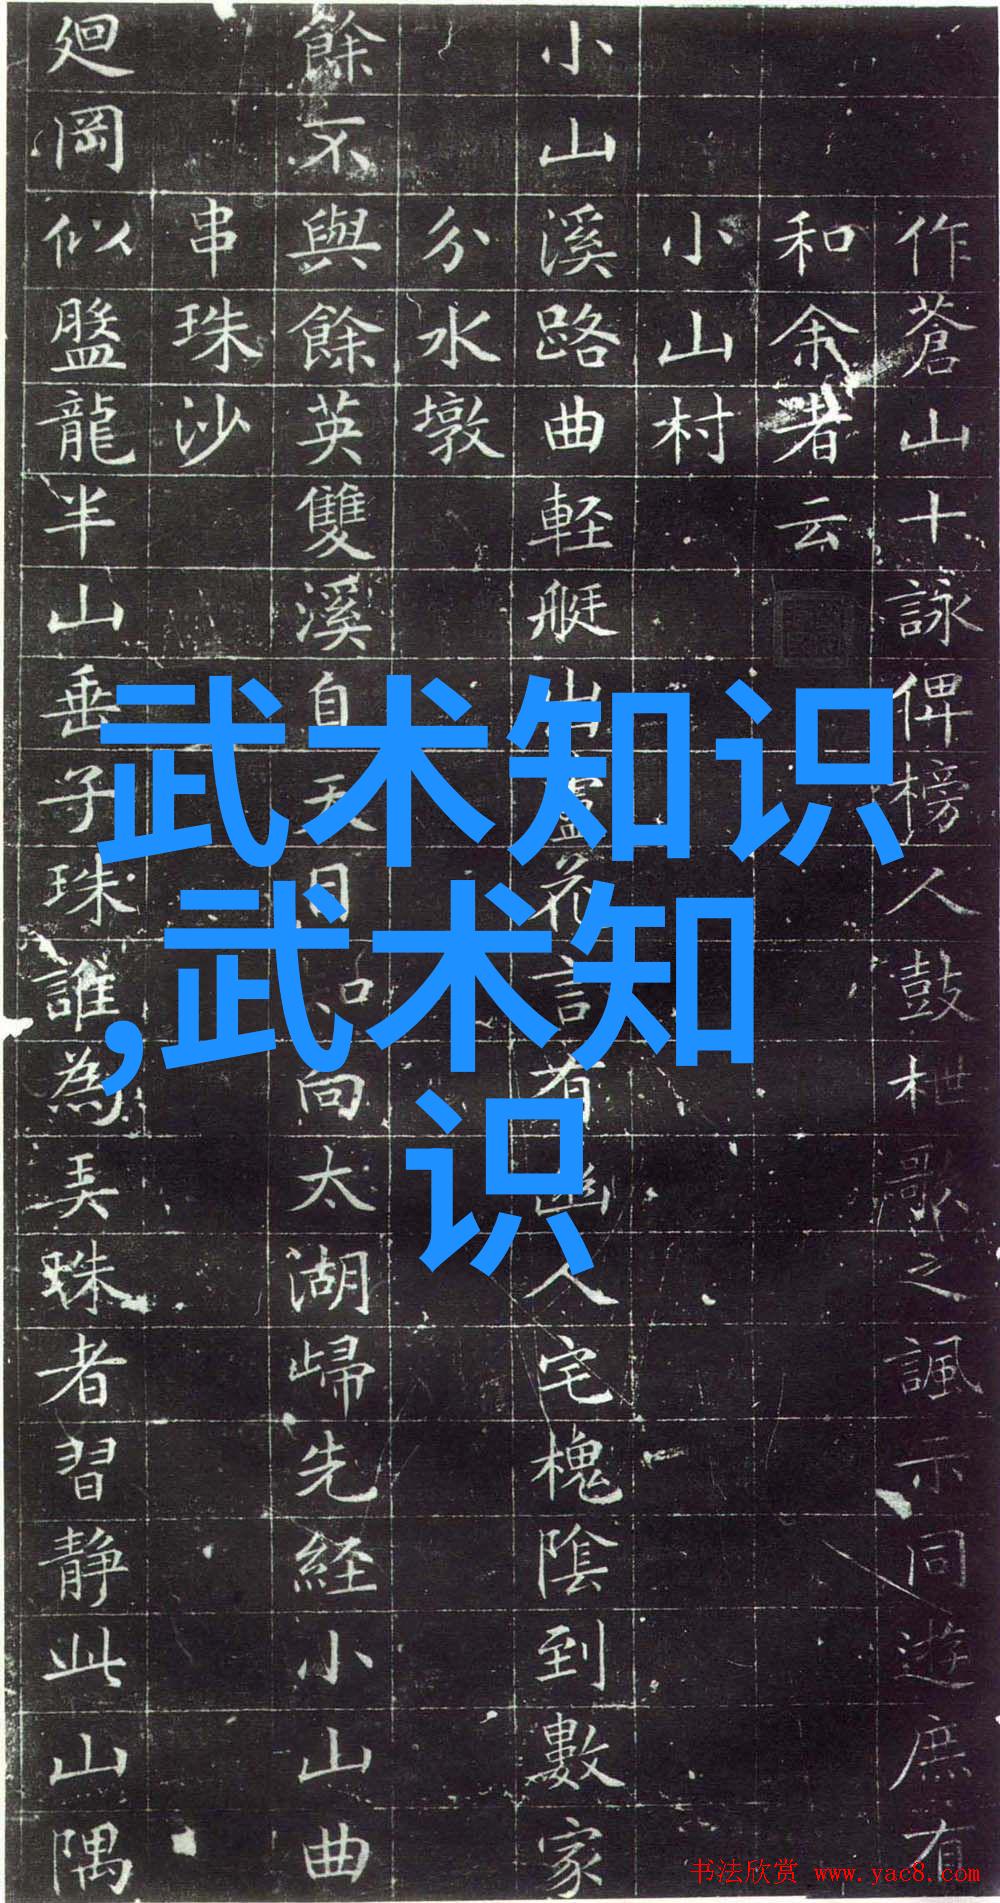 作蒼山十詠俾榜人鼓枻歌之諷示同遊庶有
和余者云
小山村
小山溪路曲軽艇花言有幽人宅槐陰到數家
分水墩
餘不與餘英雙溪自天目向太湖歸先経小山曲
串珠沙
廻岡似盤龍半山垂子珠誰為弄珠者習静此山隅
武术知识
,武术知
识
书法欣赏 www.yac8.com